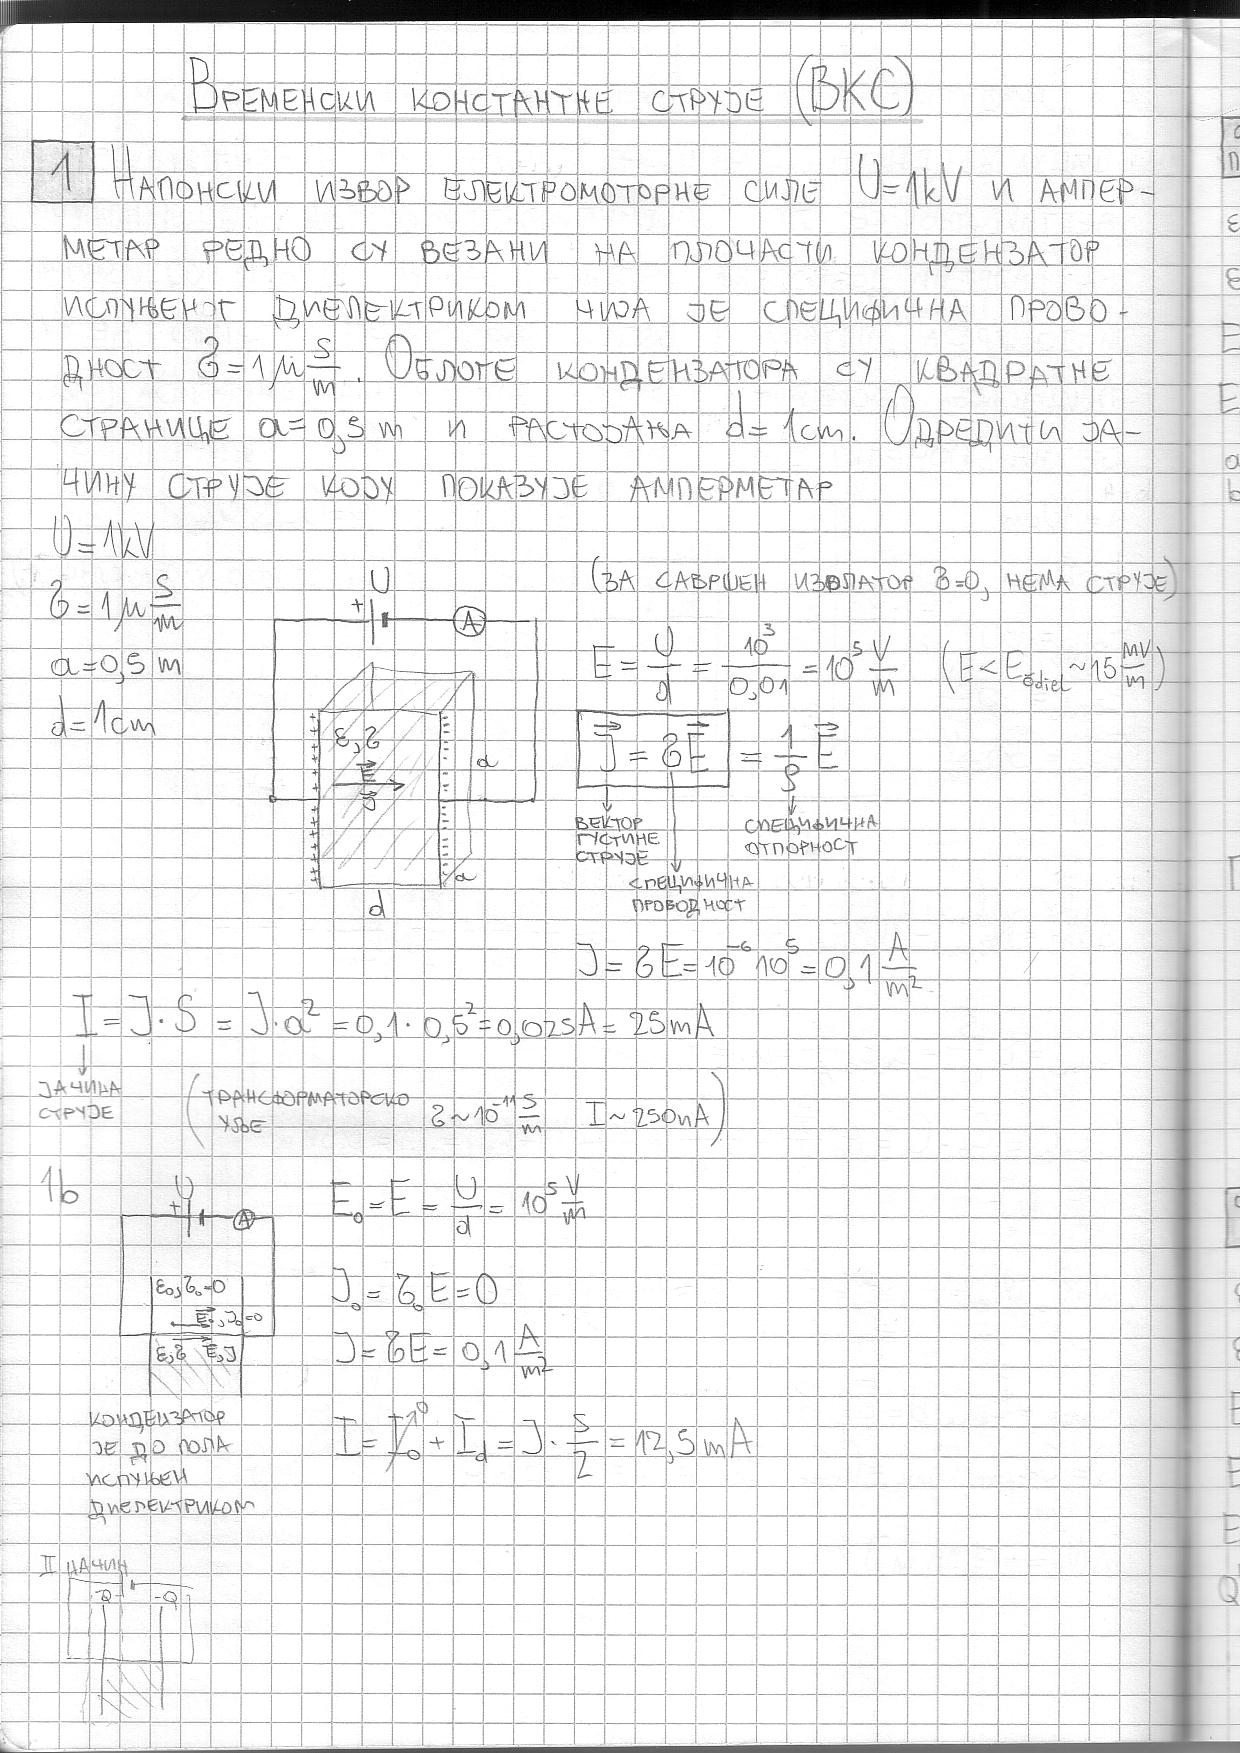 ВРЕМЕНСКИ КОНСТАНТНЕ СТРУЈЕ (ВКС)
1 НАПОНСКИ ИЗВОР ЕЛЕКТРОМОТОРНЕ СИЛЕ U=1kV И АМПЕР-
МЕТАР РЕДНО СУ ВЕЗАНИ НА ПЛОЧАСТИ КОНДЕНЗАТОР
ИСПУЊЕНОГ ДИЕЛЕКТРИКОМ ЧИЈА ЈЕ СПЕЦИФИЧНА ПРОВО-
ДНОСТ σ=1μ S/m. ОБЛОГЕ КОНДЕНЗАТОРА СУ КВАДРАТНЕ
СТРАНИЦЕ a=0,5 m И РАСТОЈАЊА d=1cm. ОДРЕДИТИ ЈА-
ЧИНУ СТРУЈЕ КОЈУ ПОКАЗУЈЕ АМПЕРМЕТАР
U=1kV
σ=1μ S/m
a=0,5 m
d=1cm
U
+
A
ε,σ
E
J
a
a
d
(ЗА САВРШЕН ИЗОЛАТОР σ=0, НЕМА СТРУЈЕ)
E = U/d = 10³/0,01 = 10⁵ V/m (E < Ečdiel ~15 MV/m)
J = σE = 1/ρ E
ВЕКТОР
ГУСТИНЕ
СТРУЈЕ
СПЕЦИФИЧНА
ОТПОРНОСТ
СПЕЦИФИЧНА
ПРОВОДНОСТ
J = σE = 10⁻⁶ 10⁵ = 0,1 A/m²
I = J·S = J·a² = 0,1·0,5² = 0,025A = 25mA
ЈАЧИНА
СТРУЈЕ
(ТРАНСФОРМАТОРСКО
УЉЕ σ~10⁻¹¹ S/m I~250nA)
1b
U
+
A
ε₀,σ₀=0
E₀,J₀=0
ε,σ E,J
E₀ = E = U/d = 10⁵ V/m
J₀ = σ₀E = 0
J = σE = 0,1 A/m²
КОНДЕНЗАТОР
ЈЕ ДО ПОЛА
ИСПУЊЕН
ДИЕЛЕКТРИКОМ
I = I₀ + I_d = J · S/2 = 12,5mA
0
II НАЧИН
Q -Q